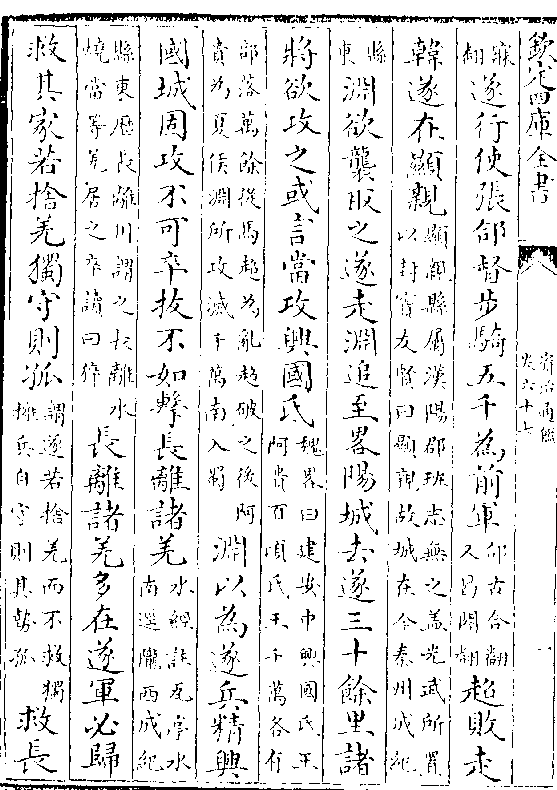 欽定四庫全書
資治通鑑
卷六十七
翻遂行使張郃督步騎五千為前軍郃古合翻又曷閤翻超敗走
韓遂在顯親顯親縣屬漢陽郡班志無之蓋光武所置以封竇友賢曰顯親故城在今秦州成紀
縣東淵欲襲取之遂走淵追至畧陽城去遂三十餘里諸
將欲攻之或言當攻興國氐魏畧曰建安中興國氐王阿貴百頃氐王千萬各有
部落萬餘從馬超為亂超破之後阿貴為夏侯淵所攻滅千萬南入蜀淵以為遂兵精興
國城固攻不可卒拔不如擊長離諸羌水經註瓦亭水南逕隴西成紀
縣東歷長離川謂之長離水燒當等羌居之卒讀曰猝長離諸羌多在遂軍必歸
救其家若捨羌獨守則孤謂遂若捨羌而不救獨擁兵自守則其勢孤救長